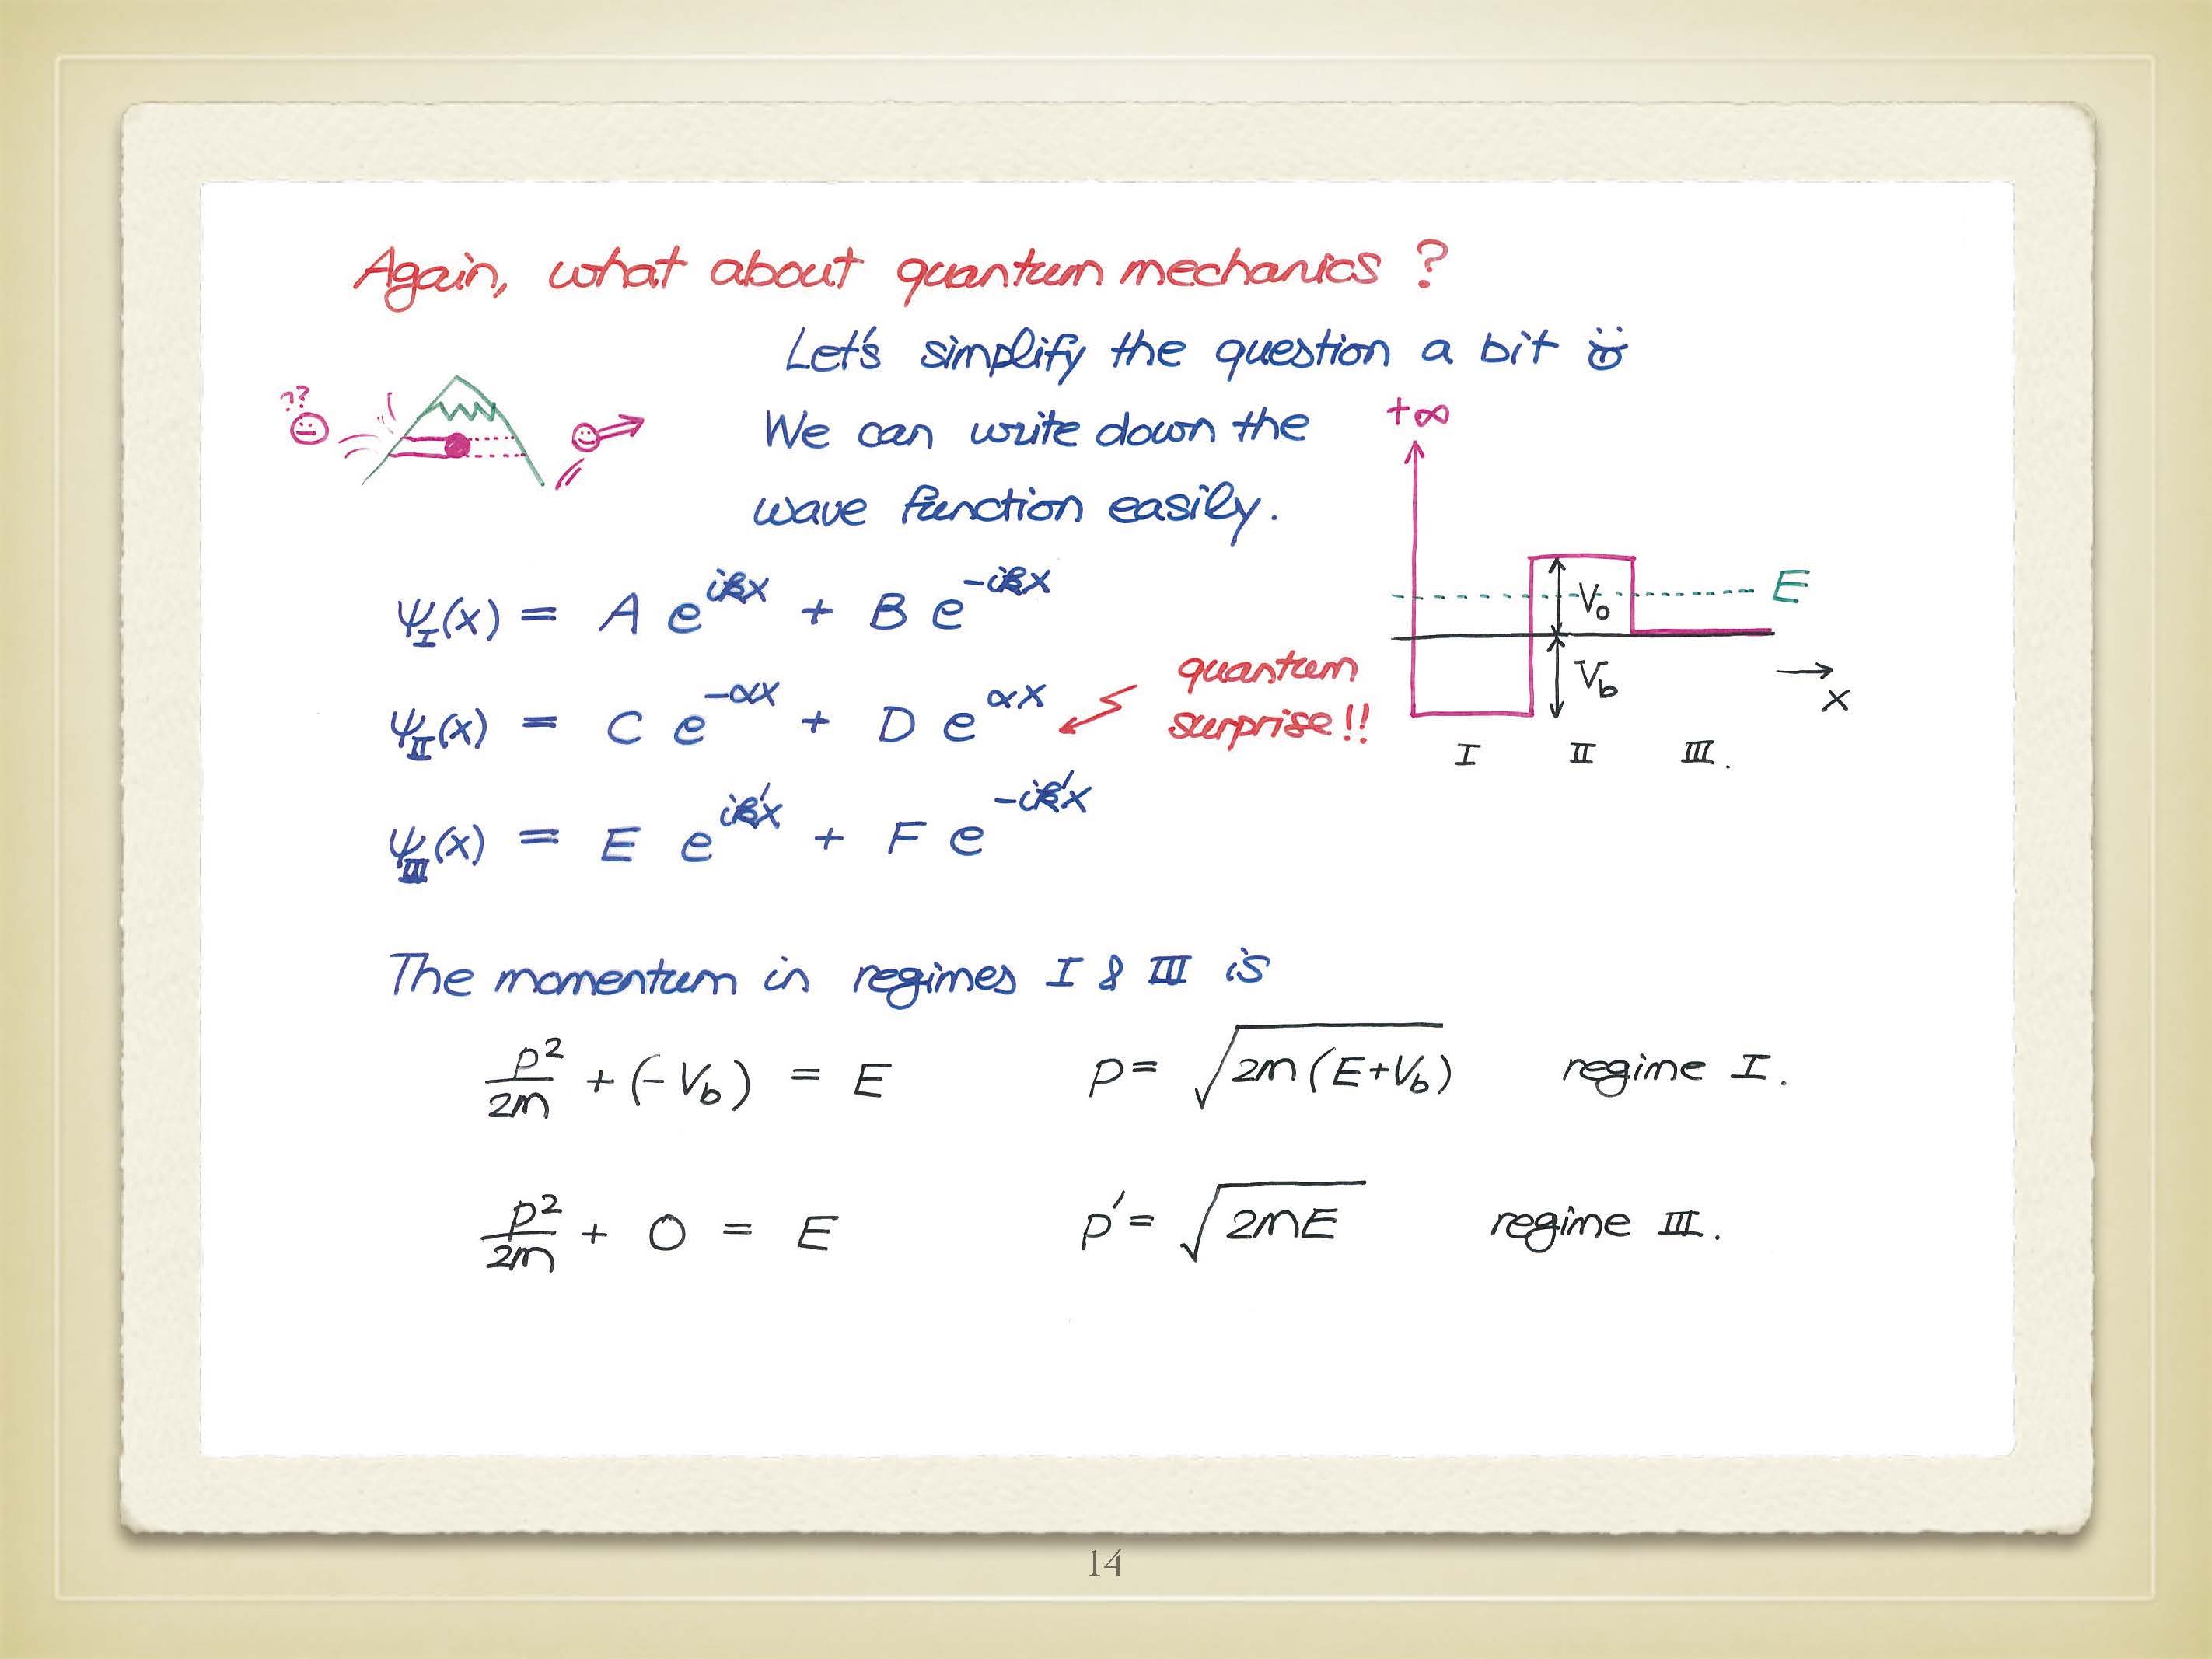 Again, what about quantum mechanics ?
Let's simplify the question a bit
??
We can write down the
wave function easily.
+∞
E
V₀
V_b
x
I II III.
ψ_I(x) = A e^{ikx} + B e^{-ikx}
ψ_II(x) = C e^{-αx} + D e^{αx}
quantum
surprise!!
ψ_III(x) = E e^{ik'x} + F e^{-ik'x}
The momentum in regimes I & III is
p²/2m + (-V_b) = E p = √2m(E+V_b) regime I.
p²/2m + 0 = E p' = √2mE regime III.
14